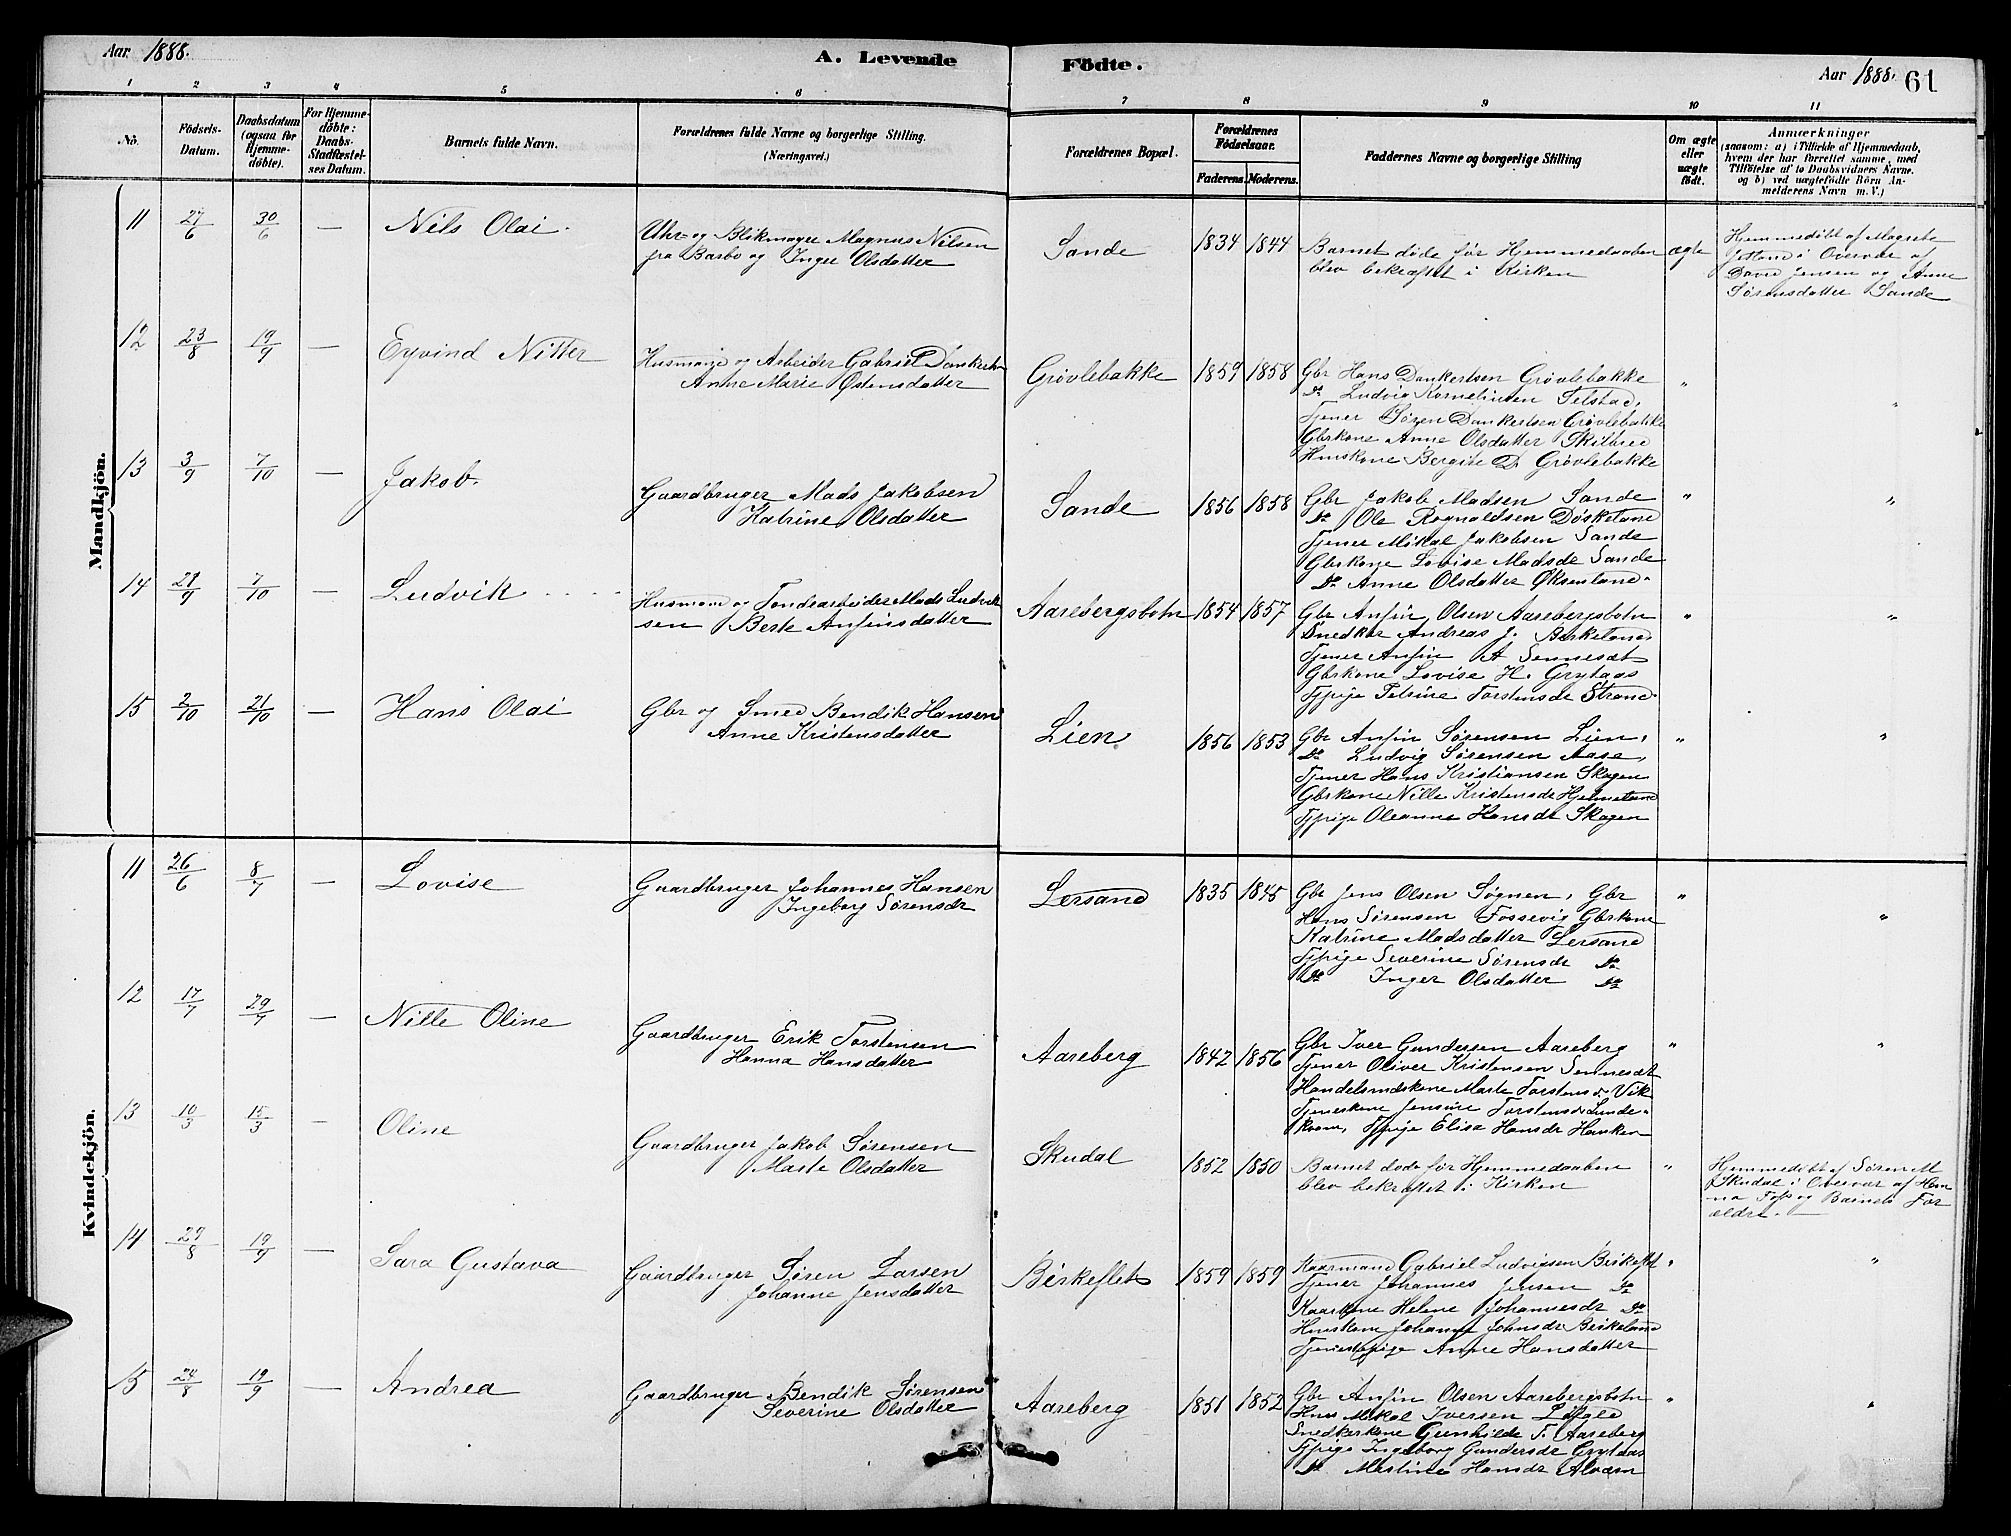 Aar 1888.
A. Levende Födte.
Aar 1888. 61
1 2 3 4 5 6 7 8 9 10 11
No.
Födsels-Datum.
Daabsdatum (ogsaa for Hjemme-döbte).
For Hjemme-döbte: Daabs-Stadfæstel-ses Datum.
Barnets fulde Navn.
Forældrenes fulde Navne og borgerlige Stilling.
(Næringsvei.)
Forældrenes Bopæl.
Forældrenes Födselsaar.
Faderens. Moderens.
Faddernes Navne og borgerlige Stilling
Om ægte eller uægte født.
Anmærkninger
(saasom: a) i Tilfælde af Hjemmedaab,
hvem der har forrettet samme, med
Tilföielse af to Daabsvidners Navne.
og b) ved uægtefödte Börn An-
melderens Navn m. V.)
Mandkjön.
11 27/6 30/6 — Nils Olai.
Uhr- og Blikmager Magnus Nilsen
fra Barbo og Inger Olsdatter
Sande 1834 1844
Barnet döde för Hjemmedaaben
blev bekræftet i Kirken
ægte
Hjemmedöbt af
i Overvær af
David Jensen og Anne
Sörensdatter Sande
12 23/8 19/9 — Eyvind Nitter
og Arbeider Gabriel
Anne Marie Østensdatter
Grövlebakke 1859 1858
Gbr Hans Dankertsen Grövlebakke
Do Ludvig Kornelius­sen
Tjener Sören Dankertsen Grövlebakke
Gbrkone Anne Olsdatter
Huskone D. Grövlebakke
"
"
13 3/9 7/10 — Jakob.
Gaardbruger Mads Jakobsen
Katrine Olsdatter
Sande 1856 1858
Gbr Jakob Madsen Sande
Do Ole Rognaldsen Döskeland
Tjener Mikal Jakobsen Sande
Gbrkone Lovise Madsdr Sande
Do Anne Olsdatter Øksenland.
"
"
14 7/10 — Ludvik
Husmand og Mads Ludvik
sen Berte Anfinsdatter
Aarebergsbotn 1854 1857
Gbr Anfin Olsen Aarebergsbotn
Snedker Andreas J. Birkeland
Tjener Anfin A Sennesæt
Gbrkone Lovise H. Grytaas
Tjpige Torstensdr Strand.
"
"
15 2/10 21/10 — Hans Olai
Gbr og Smed Bendik Hansen
Anne Kristensdatter
Lien 1856 1853
Gbr Anfin Sörensen Lien,
Do Ludvig Sörensen Aase,
Tjener Hans Kristiansen Skagen
Gbrkone Nille Kristensdr Hjelmeland
Tjpige Oleanne Hansdr Skagen
"
"
Kvindekjön.
11 26/6 8/7 — Lovise
Gaardbruger Johannes Hansen
Ingeborg Sörensdr
Lersand 1835 1845
Gbr Jens Olsen Sognen, Gbr
Hans Sörensen Fossevig Gbrkone
Katrine Madsdatter Lersand
Tjpige Severine Sörensdr Do
Do Inger Olsdatter Do
"
"
12 17/7 29/7 — Nille Oline
Gaardbruger Erik Torstensen
Hanna Hansdatter
Aareberg 1842 1856
Gbr Iver Gundersen Aareberg
Tjener Oliver Kristensen Sennesæt
Marte Torstensdr Vik
Jensine Torstensdr
Tjpige Elisa Hansdr
"
"
13 10/3 15/3 — Oline
Gaardbruger Jakob Sörensen
Marte Olsdatter
Skudal 1852 1850
Barnet döde för Hjemmedaaben
blev bekræftet i Kirken
"
Hjemmedöbt af Sören M
Skudal i Overvær af Han
na Tjp og Barnets For
ældre.
14 29/8 19/9 — Sara Gustava
Gaardbruger Sören Larsen
Johanne Jensdatter
Birkeflet 1859 1859
Kaarmand Gabriel Ludvigsen Birkeflet
Tjener Johannes Jensen Do
Kaarkone Helene Johannesdr Do
Huskone Johanne Birkeland
Anne Hansdatter
"
"
15 24/8 19/9 — Andrea
Gaardbruger Bendik Sörensen
Severine Olsdatter
Aareberg 1851 1852
Gbr Anfin Olsen Aarebergsbotn
Mikal Iversen
Snedkerkone Gunhilde T. Aareberg
Tjpige Ingeborg Gundersdr Grytaas
Do Martine Hansdr
"
"